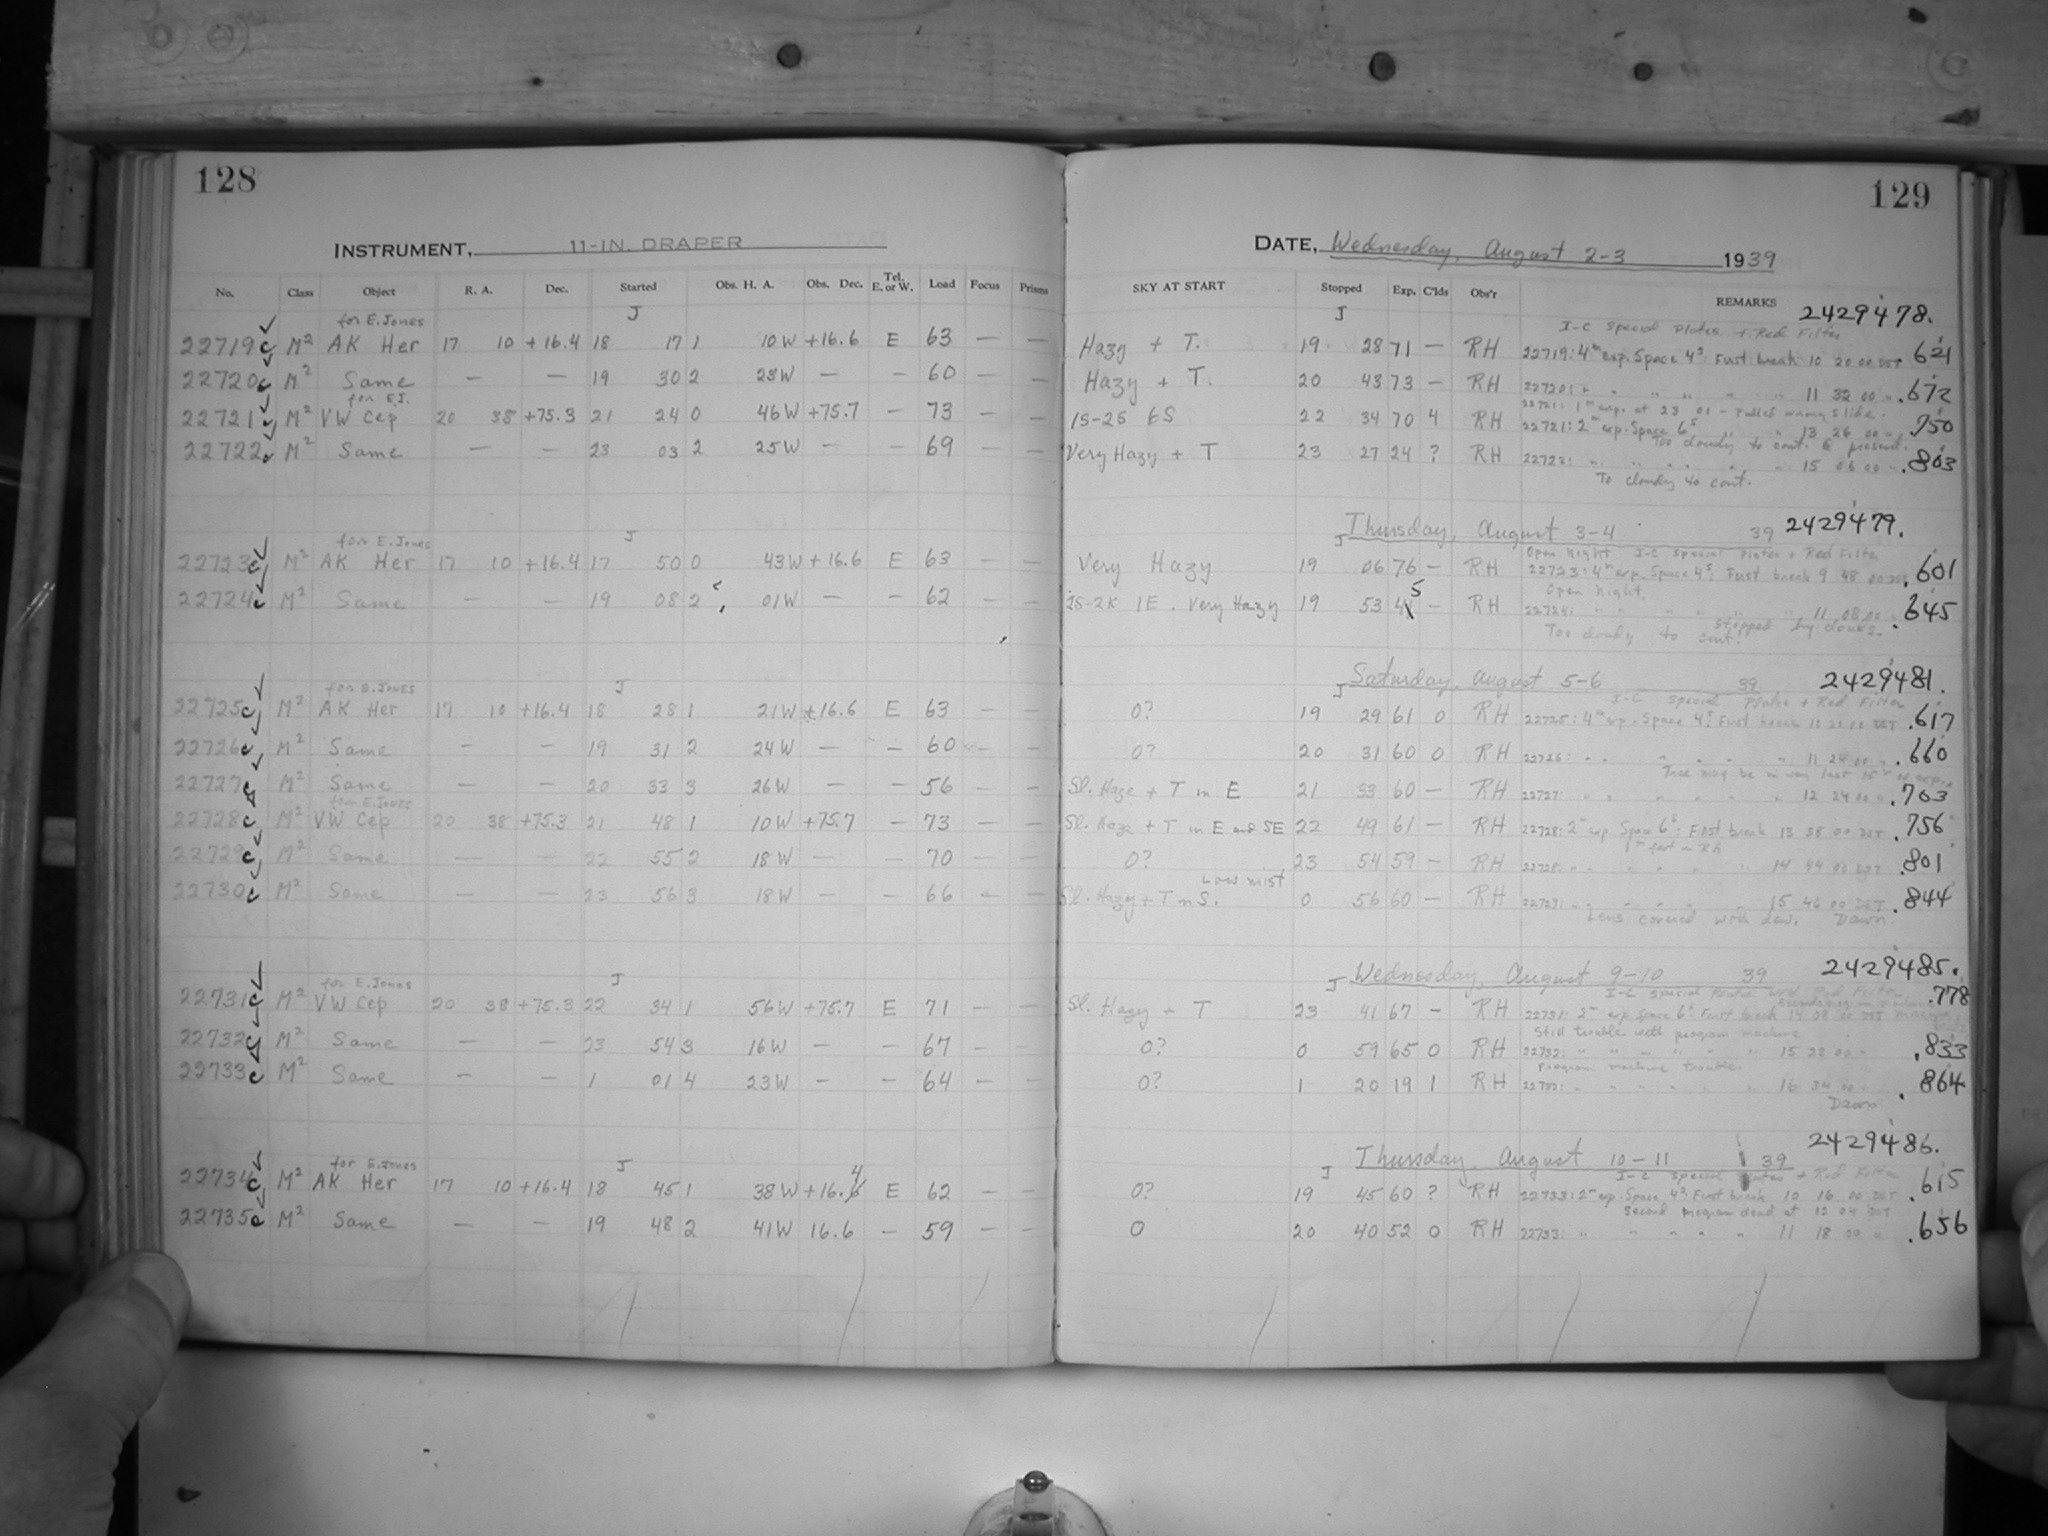 128
INSTRUMENT, 11-IN. DRAPER
No. Class Object R. A. Dec. Started Obs. H. A. Obs. Dec. Tel. E. or W. Load Focus Prisms
for E. Jones J
22719c M² AK Her 17 10 +16.4 18 17 1 10W +16.6 E 63 — —
22720c M² Same — — 19 30 2 23W — — 60 — —
for E.J.
22721c M² VW Cep 20 38 +75.3 21 24 0 46W +75.7 — 73 — —
22722c M² Same — — 23 03 2 25W — — 69 — —
for E. Jones J
22723c M² AK Her 17 10 +16.4 17 50 0 43W +16.6 E 63 — —
22724c M² Same — — 19 08 2 01W — — 62 — —
for E. Jones J
22725c M² AK Her 17 10 +16.4 18 28 1 21W +16.6 E 63 — —
22726c M² Same — — 19 31 2 24W — — 60 — —
22727c M² Same — — 20 33 3 26W — — 56 — —
for E. Jones
22728c M² VW Cep 20 38 +75.3 21 48 1 10W +75.7 — 73 — —
22729c M² Same — — 22 55 2 18W — — 70 — —
22730c M² Same — — 23 56 3 18W — — 66 — —
for E. Jones J
22731c M² VW Cep 20 38 +75.3 22 34 1 56W +75.7 E 71 — —
22732c M² Same — — 23 54 3 16W — — 67 — —
22733c M² Same — — 1 01 4 23W — — 64 — —
for E. Jones J
22734c M² AK Her 17 10 +16.4 18 45 1 38W +16.4 E 62 — —
22735c M² Same — — 19 48 2 41W 16.6 — 59 — —
129
DATE, Wednesday, August 2-3 1939
SKY AT START Stopped Exp. C'lds Obs'r REMARKS 2429478.
J I-C Special Plates + Red Filter
Hazy + T. 19 28 71 — RH 22719: 4ᵐ exp. Space 4ˢ: First break 10 20 00 DST .621
Hazy + T. 20 43 73 — RH 22720: " " " " " 11 32 00 " .672
22721: 1ᵐ exp. at 23 01 - Pulled wrong slide.
1S-2S 6S 22 34 70 4 RH 22721: 2ᵐ exp. Space 6ˢ " " 13 26 00 " .750
Too cloudy to cont. @ present.
Very Hazy + T 23 27 24 ? RH 22722: " " " " " 15 06 00 " .803
To cloudy to cont.
Thursday, August 3-4 39 2429479.
J Open Night I-C Special Plates + Red Filter
Very Hazy 19 06 76 — RH 22723: 4ᵐ exp. Space 4ˢ: First break 9 48 00 DST .601
Open Night.
2S-2K 1E. Very Hazy 19 53 45 — RH 22724: " " " " " 11 08 00 " .645
Stopped by clouds.
Too cloudy to cont.
Saturday, August 5-6 39 2429481.
J I-C Special Plates + Red Filter
0? 19 29 61 0 RH 22725: 4ᵐ exp. Space 4ˢ: First break 10 21 00 DST .617
0? 20 31 60 0 RH 22726: " " " " " 11 24 00 " .660
Tree may be in way last 15ᵐ of exp.
Sl. Haze + T in E 21 33 60 — RH 22727: " " " " " 12 24 00 " .703
Sl. Haze + T in E and SE 22 49 61 — RH 22728: 2ᵐ exp. Space 6ˢ: First break 13 38 00 DST .756
0? 23 54 59 — RH " " " " 14 44 00 DST .801
Low mist
Sl. Hazy + T in S. 0 56 60 — RH 22729: " " " " 15 46 00 DST .844
Lens covered with dew. Dawn
Wednesday, August 9-10 39 2429485.
J I-C Special Plates and Red Filter
Sl. Hazy + T 23 41 67 — RH 22731: 2ᵐ exp. Space 6ˢ: First break 14 08 00 DST .778
Still trouble with program machine
0? 0 59 65 0 RH 22732: " " " " " 15 28 00 " .833
Program machine trouble.
0? 1 20 19 1 RH " " " " " 16 34 00 " .864
Dawn
Thursday, August 10-11 39 2429486.
J I-C Special Plates + Red Filter
0? 19 45 60 ? RH 22733: 2ᵐ exp. Space 4ˢ: First break 10 16 00 DST .615
Second program dead at 12 04 DST
0 20 40 52 0 RH 22733: " " " " " 11 18 00 " .656